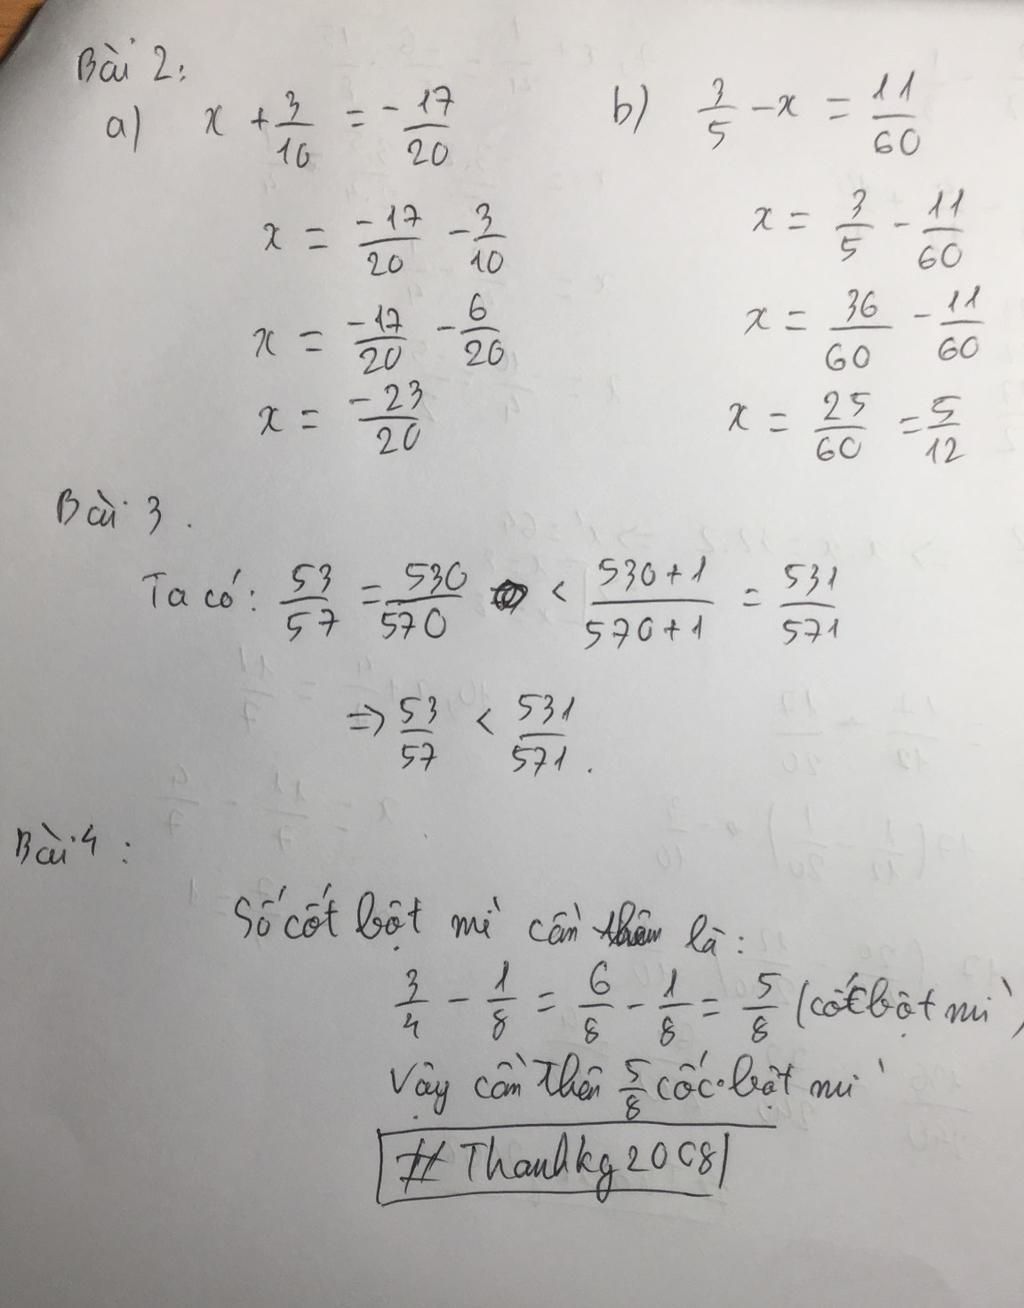 Bài 2:
a) x + 3/10 = -17/20
b) 3/5 - x = 11/60
x = -17/20 - 3/10
x = 3/5 - 11/60
x = -17/20 - 6/20
x = 36/60 - 11/60
x = -23/20
x = 25/60 = 5/12
Bài 3.
Ta có: 53/57 = 530/570 < 530+1/570+1 = 531/571
=> 53/57 < 531/571.
Bài 4:
Số cốt bột mì cần thêm là:
3/4 - 1/8 = 6/8 - 1/8 = 5/8 (cốc bột mì)
Vậy cần thên 5/8 cốc bột mì
#Thanhkg2008